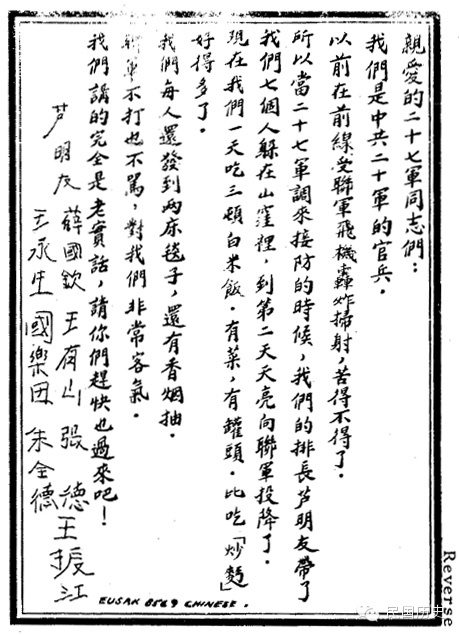 親愛的二十七軍同志們：
我們是中共二十軍的官兵．
以前在前線受聯軍飛機轟炸掃射，苦得不得了．
所以當二十七軍調來接防的時候，我們的排長芦明友帶了
我們七個人躲在山窪裡，到第二天天亮向聯軍投降了．
現在我們一天吃三頓白米飯．有菜，有罐頭．比吃「炒麵」
好得多了．
我們每人還發到兩床毯子，還有香烟抽．
聯軍不打也不罵，對我們非常客氣．
我們講的完全是老實話，請你們趕快也過來吧！
薛國欽 王有山 張 德 王振江
芦明友 王承生 國樂田 朱全德
EUSAK 8569 CHINESE.
Reverse
民国历史